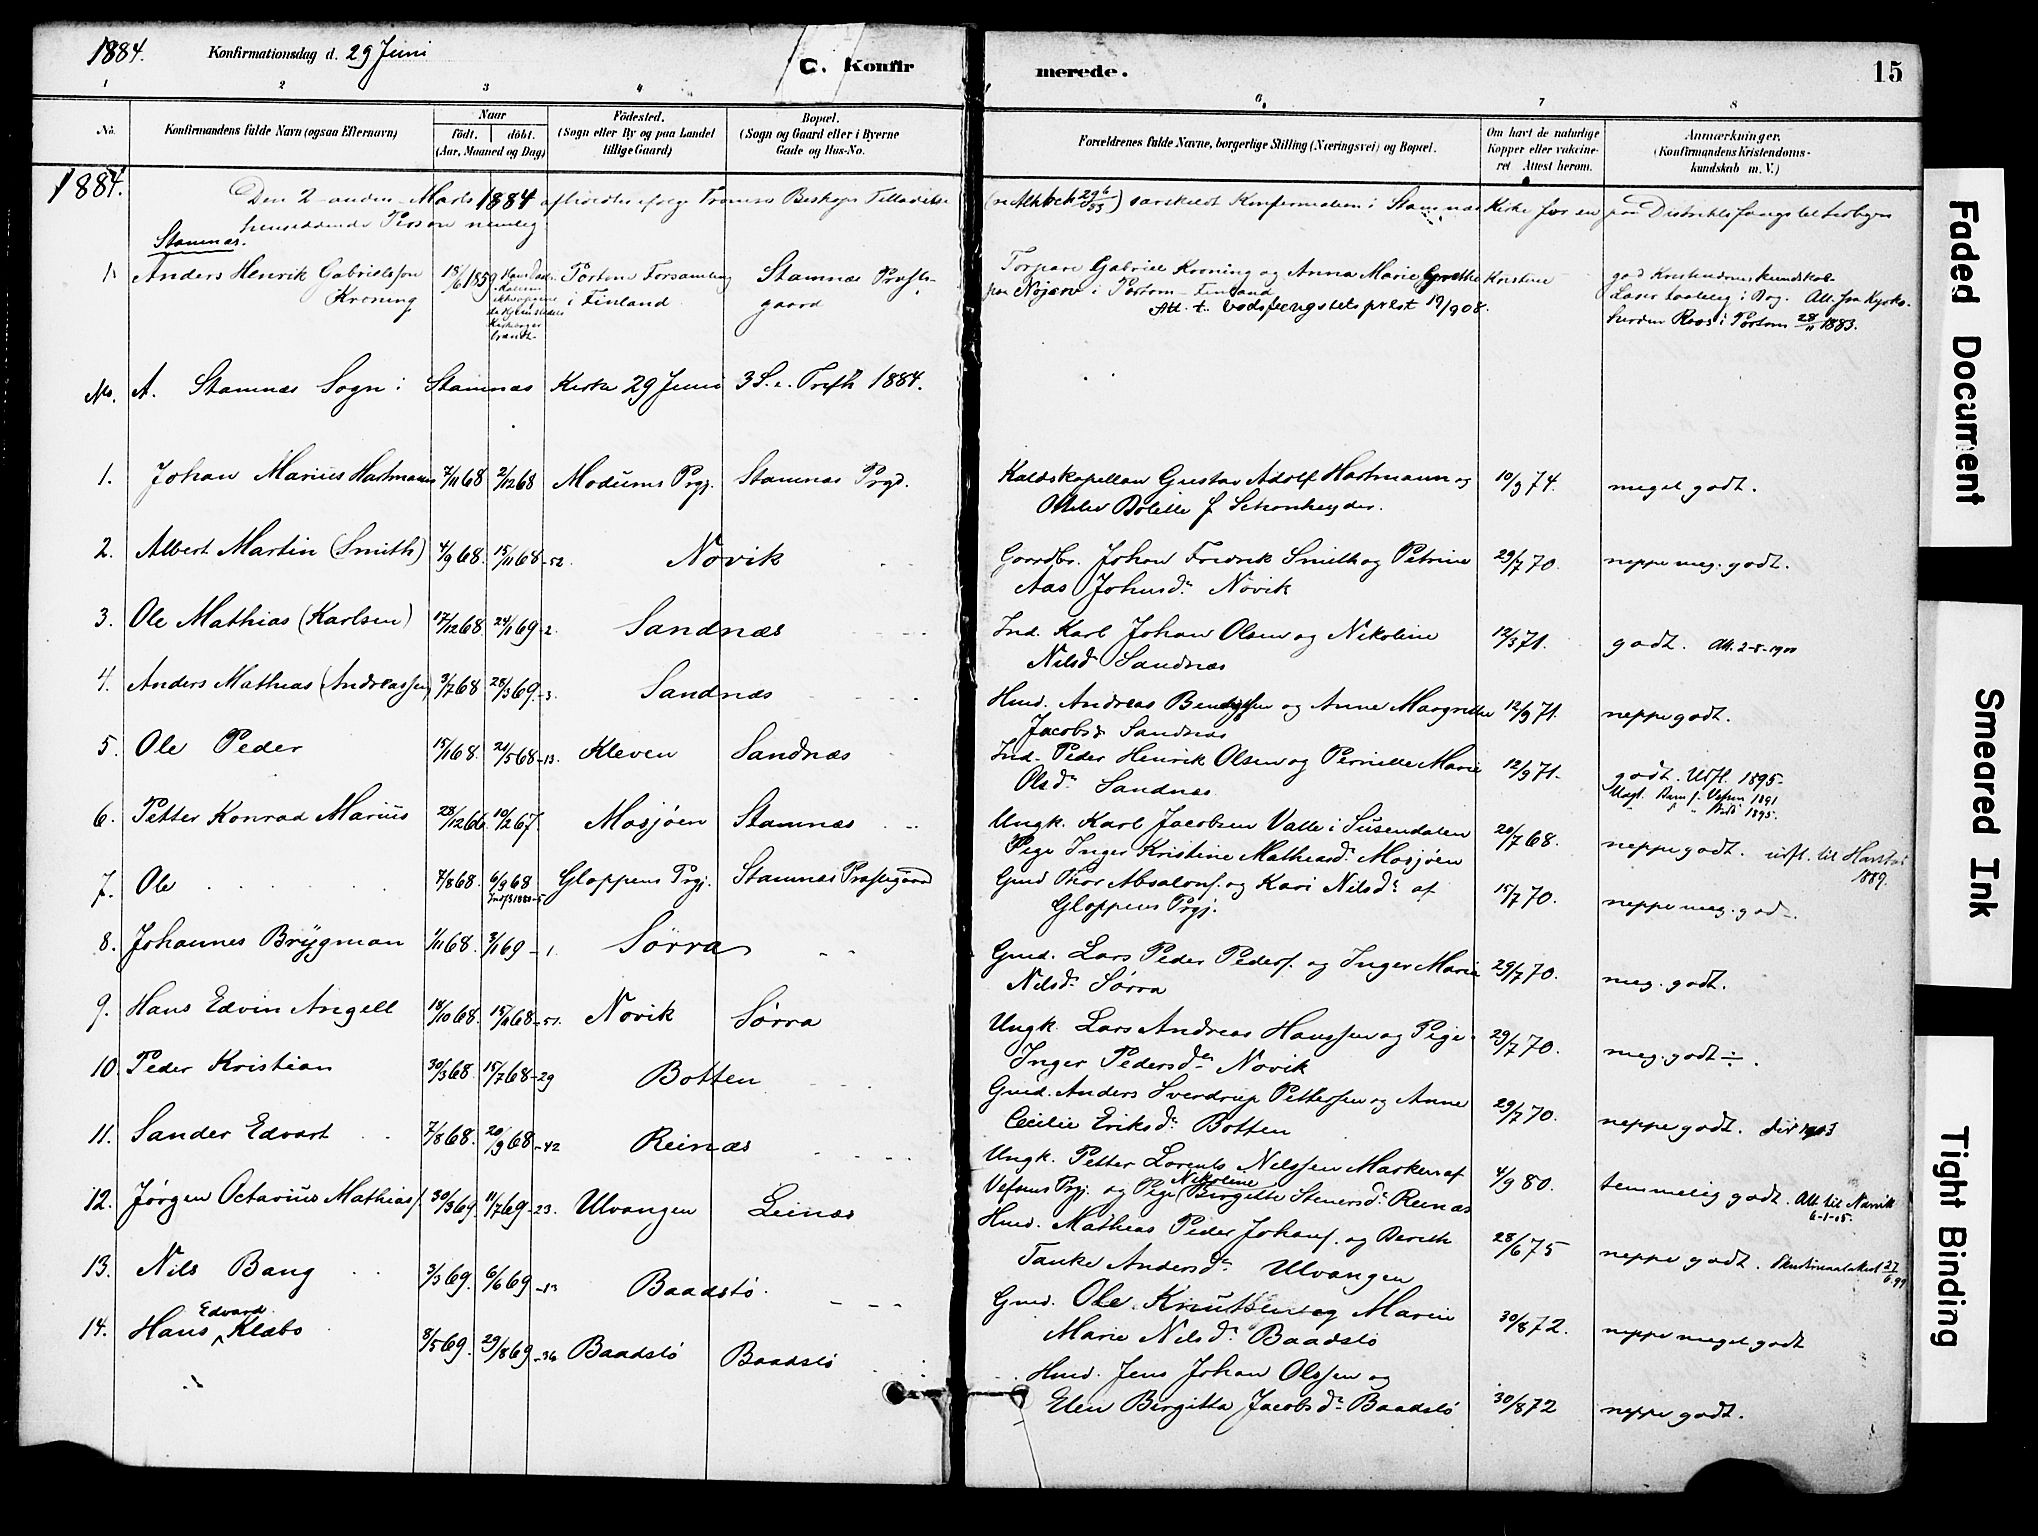 1884. Konfirmationsdag d. 29 Juni
C. Konfirmerede.
15
1 2 3 4 6 7 8
No. Konfirmandens fulde Navn (ogsaa Efternavn) Naar født. døbt. (Aar, Maaned og Dag) Fødested. (Sogn eller By og paa Landet tillige Gaard) Bopæl. (Sogn og Gaard eller i Byerne Gade og Hus-No. Forældrenes fulde Navne, borgerlige Stilling (Næringsvei) og Bopæl. Om havt de naturlige Kopper eller vakcineret Attest herom. Anmærkninger. (Konfirmandens Kristendomskundskab m. V.)
1884. Den 2-anden Marts 1884 afholdtes ifølge Tromsø Biskops Tilladelse særskildt Konfirmation i Stamnæs Kirke for en paa Distriktsfængslet
henseddende Person nemlig
Stamnæs.
1. Anders Henrik Gabrielsson Kroning 1859 Portom Forsamling i Finland Stamnæs Præstegaard Torpare Gabriel Kroning og Anna Marie Grethe Kristine
paa Nøjærv i Portom Finland
Att. t. bodsfengslets prest 19/9 08.
god Kristendomskundskab
Læser taalelig i Bog. Att. fra Kyrkoherden Roos i Portom 28/11 1883.
No. A. Stamnæs Sogn i Stamnæs Kirke 29 Juni 3 S. e. Trefth 1884.
1. Johan Marius Hartmann 7/11 68 2/12 68 Modums Prgj. Stamnæs Prgd. Kaldskapellan Gustav Adolf Hartmann og
Bolette f. Schonheyder. 10/9 74. meget godt.
2. Albert Martin (Smith) 4/9 68. 15/11 68-52. Novik Gaardbr. Johan Fredrik Smith og Petrine
Aas Johnsdr. Novik 29/7 70. neppe meg. godt.
3. Ole Mathias (Karlsen) 17/12 68 24/1 69-2. Sandnæs Ind. Karl Johan Olsen og Nikoline
Nilsdr Sandnæs 12/3 71. godt. Att. 2-8-1900
4. Anders Mathias (Andreassen) 3/7 68 28/3 69-3. Sandnæs Hmd. Andreas og Anne Margrethe
Jacobsdr Sandnæs 12/9 71. neppe godt.
5. Ole Peder 15/1 68. 21/5 68-13. Kleven Sandnæs Ind. Peder Henrik Olsen og Pernille Marie
Olsdr. Sandnæs 12/9 71. godt. Utfl. 1895
6. Petter Konrad Marius 28/12 66 10/2 67. Mosjøen Stamnæs Ungk. Karl Jacobsen Valle i Susendalen
Pige Inger Kristine Mathiasdr. Mosjøen 20/7 68. neppe godt. utfl. til Harstad
1889.
7. Ole 7/8 68. 6/9 68 Gloppens Prgj. Stamnæs Præstegaard Gmd Thor Absalons. og Kari Nilsdr af
Gloppens Prgj. 15/7 70. neppe meg. godt.
8. Johannes Brygman 1/11 68. 3/1 69-1. Sørra Gmd. Lars Peder Peders. og Inger Marie
Nilsdr. Sørra 29/7 70. meg. godt.
9. Hans Edvin Angell 18/10 68. 15/11 68-51. Novik Sørra Ungk. Lars Andreas Hanssen og Pige
Inger Pedersdr Novik 29/7 70. meg. godt ÷.
10. Peder Kristian 30/3 68. 15/7 68-29 Botten Gmd. Anders Sverdrup Pettersen og Anne
Cecilie Eriksdr. Botten 29/7 70. neppe godt.
11. Sander Edvart 7/8 68. 20/9 68-42 Reinæs Ungk. Petter Lorents Nilssen Marken af
Vefsens Prgj. og Pige Nikoline Birgitte Stenersdr. Reinæs 4/9 80. temmelig godt. Att. til Narvik
6-1-05.
12. Jørgen Octavius Mathias. 30/3 69. 11/7 69-23. Ulvangen Leinæs Hmd. Mathias Peder Johans. og Bereth
Tanke Andersdr. Ulvangen 28/6 75 neppe godt.
13. Nils Bang 3/3 69. 6/6 69-13 Baadstø. Gmd. Ole Knutsen og Maren
Marie Nilsdr. Baadstø 30/8 72. neppe meget godt
14. Hans Edvard Klæbo 8/5 69. 29/8 69-36 Baadstø Baadstø Hmd. Jens Johan Olssen og
Elen Birgitta Jacobsdr. Baadstø 30/8 72 neppe godt.
Faded Document
Smeared Ink
Tight Binding